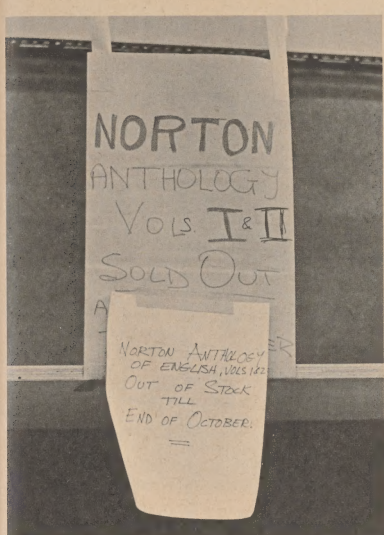 NORTON
ANTHOLOGY
VOLS I & II
SOLD OUT
NORTON ANTHOLOGY
OF ENGLISH, VOLS 1&2
OUT OF STOCK
TILL
END OF OCTOBER.